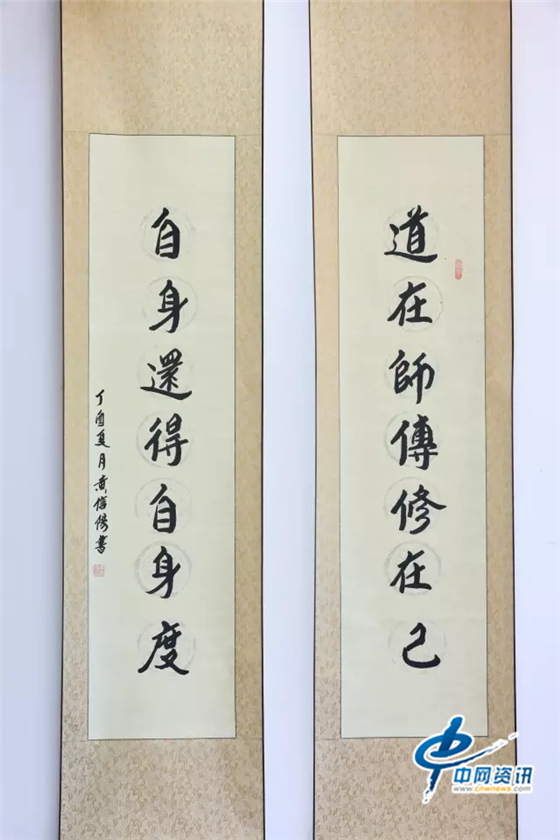 道在師傳修在己
自身還得自身度
丁酉夏月黄信
书
中网资讯
www.cnwnews.com